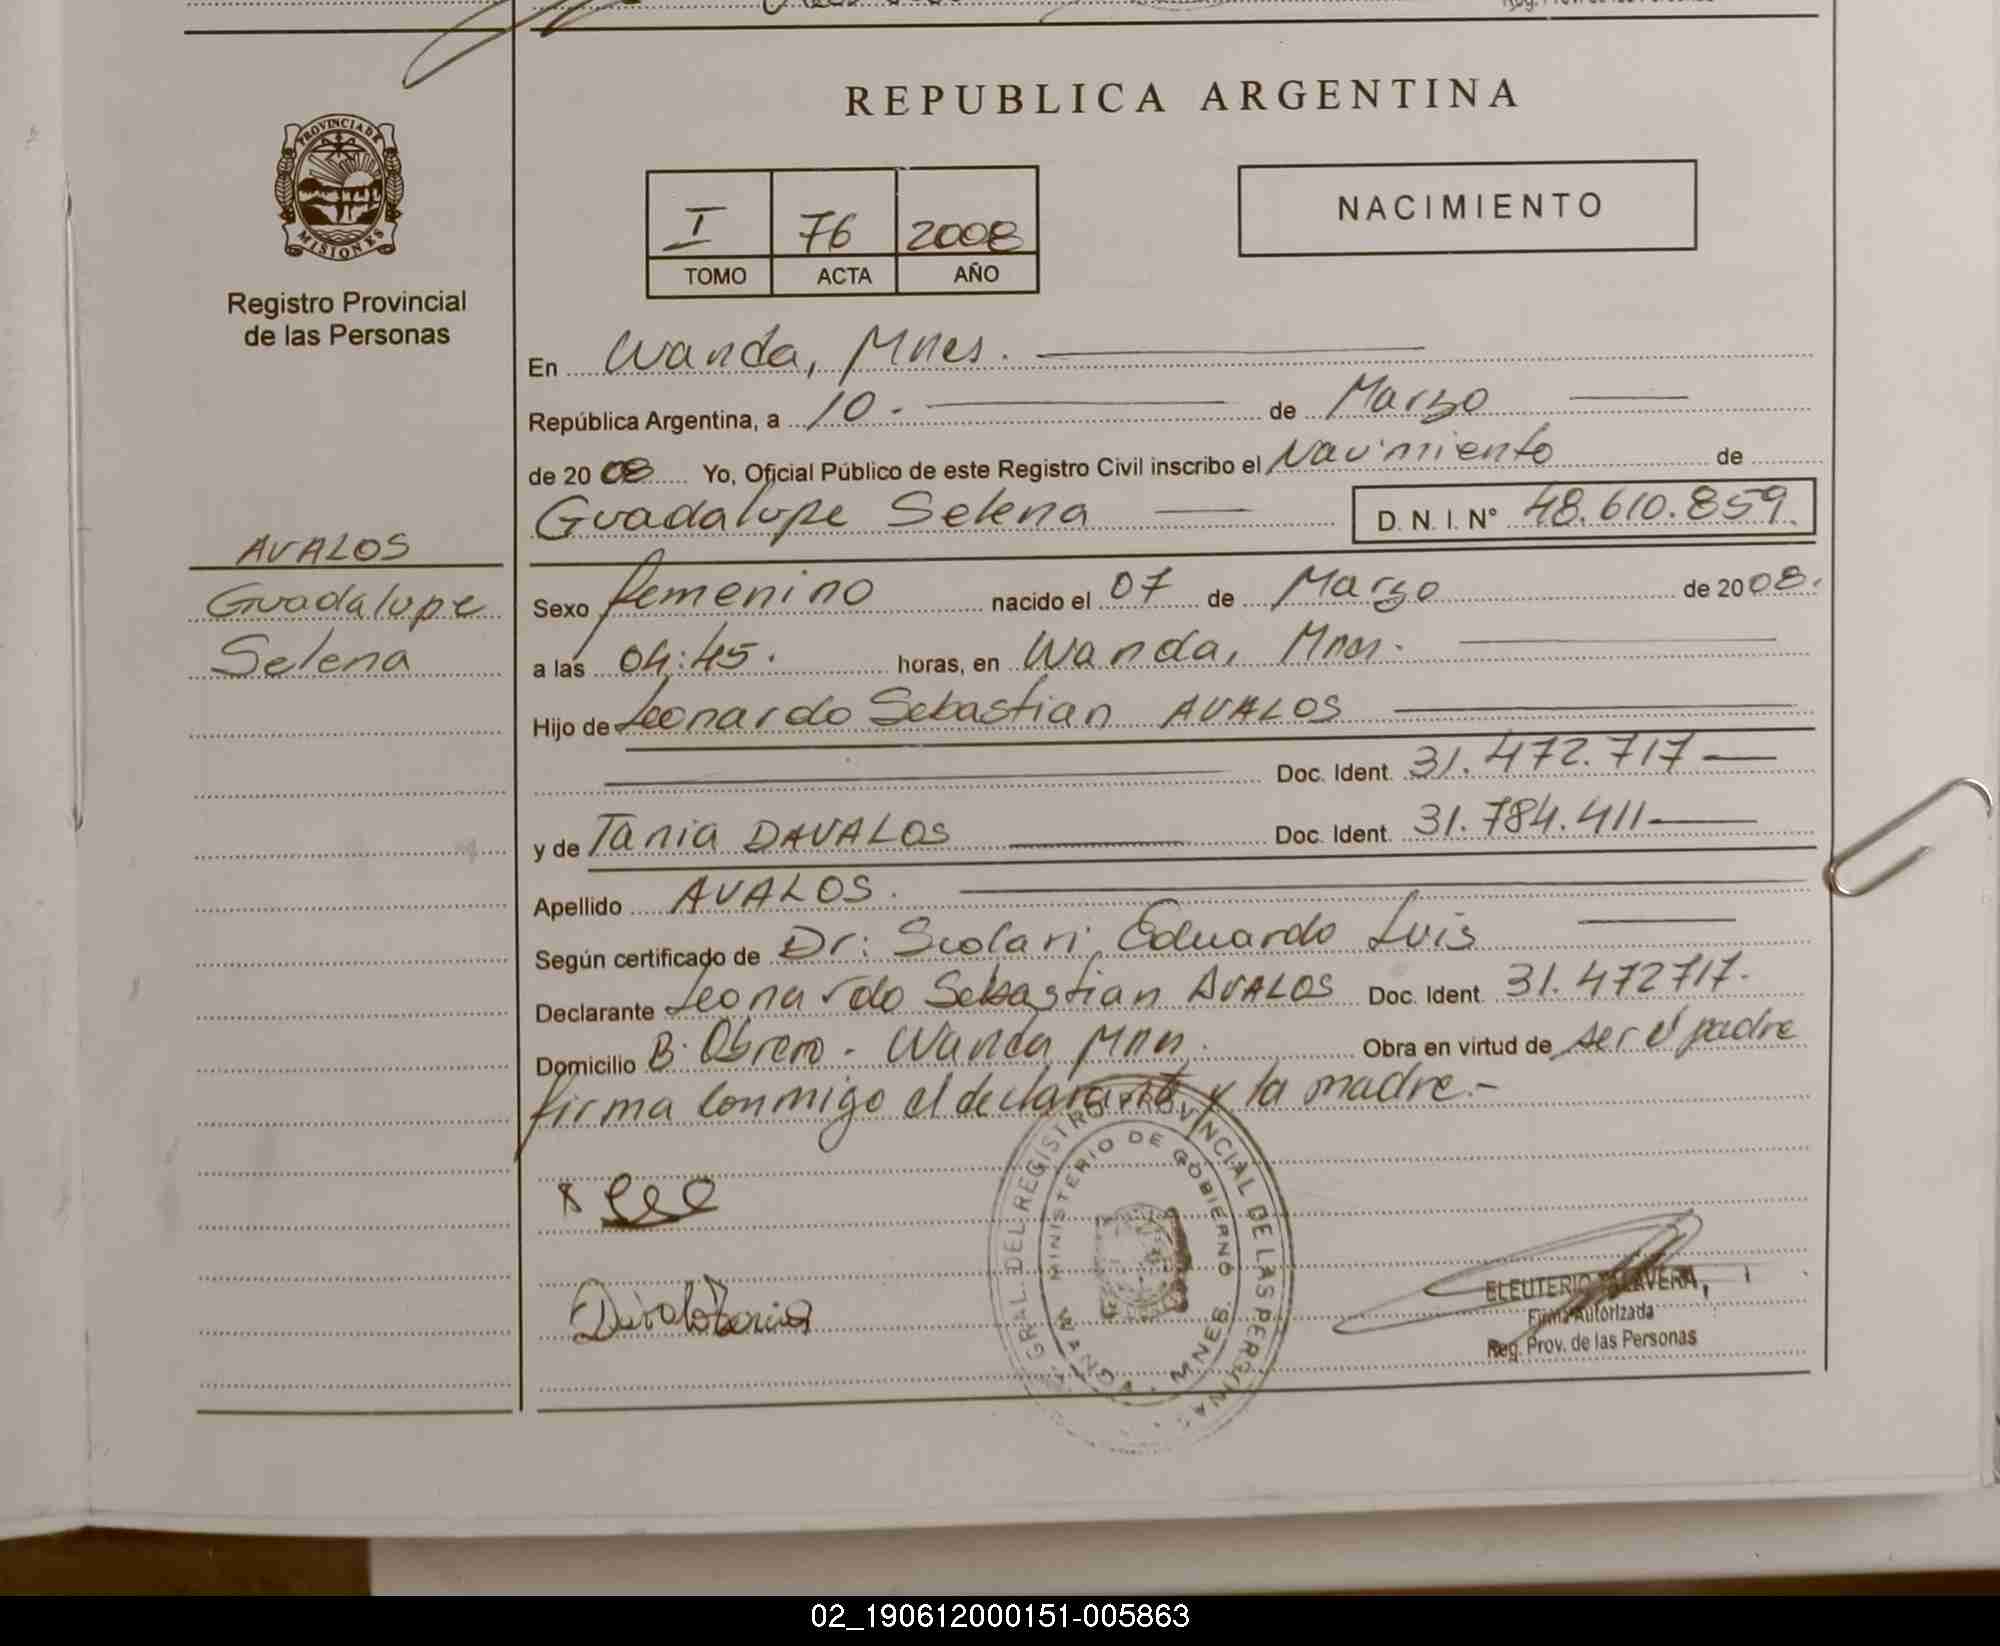 REPUBLICA ARGENTINA
PROVINCIA DE
MISIONES
Registro Provincial
de las Personas
I 76 2008
TOMO ACTA AÑO
NACIMIENTO
En Wanda, Mnes.
República Argentina, a 10. de Marzo
de 20 08 Yo, Oficial Público de este Registro Civil inscribo el Nacimiento de
Guadalupe Selena D. N. I. N° 48.610.859.
AVALOS
Guadalupe
Selena
Sexo femenino nacido el 07 de Marzo de 2008.
a las 04:45. horas, en Wanda, Mnes.
Hijo de Leonardo Sebastian AVALOS
Doc. Ident. 31.472.717
y de Tania DAVALOS Doc. Ident. 31.784.411
Apellido AVALOS.
Según certificado de Dr: Scolari Eduardo Luis
Declarante Leonardo Sebastian AVALOS Doc. Ident. 31.472717.
Domicilio B. Obrero - Wanda Mnes. Obra en virtud de ser el padre
firma conmigo el declarante y la madre.-
GRAL. DEL REGISTRO PROVINCIAL DE LAS PERSONAS
MINISTERIO DE GOBIERNO
WANDA MNES.
ELEUTERIO TALAVERA
Firma Autorizada
Reg. Prov. de las Personas
02_190612000151-005863